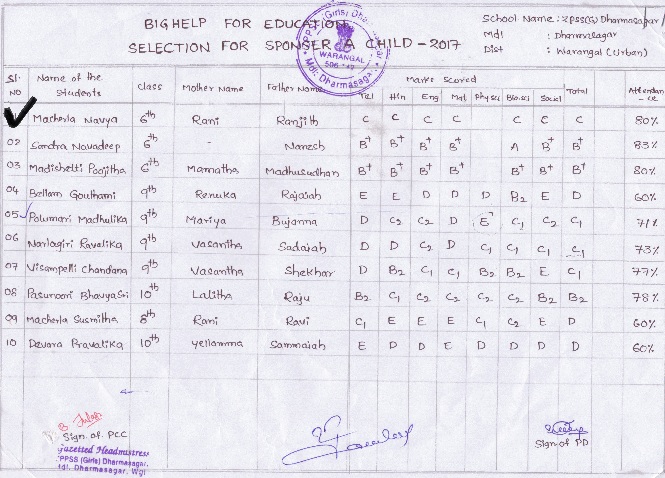 BIGHELP FOR EDUCATION
SELECTION FOR SPONSER A CHILD - 2017
School Name : ZPSS(G) Dharmasagar
Mdl : Dharmasagar
Dist : Warangal (Urban)
WARANGAL
Mdl: Dharmasagar
Sl. NO Name of the Students Class Mother Name Father Name Marks Scored Attendan-ce
Tel Hin Eng Mat Phy.sci Bio.sci Social Total
Macherla Navya 6th Rani Ranjith C C C C C C C 80%
02 Sandra Navadeep 6th - Naresh B+ B+ B+ B+ A B+ B+ 83%
03 Madishetti Poojitha 6th Mamatha Madhusudhan B+ B+ B+ B+ B+ B+ B+ 80%
04 Bellam Gouthami 9th Renuka Rajaiah E E D D D B2 E D 60%
05 Polumari Madhulika 9th Mariya Bujanna D C2 C2 D E C1 C2 C1 71%
06 Narlagiri Ravalika 9th Vasantha Sadaiah D D C2 D C1 C1 C1 C1 73%
07 Visampelli Chandana 9th Vasantha Shekhar D B2 C1 C1 B2 B2 E C1 77%
08 Pasunoori BhavyaSri 10th Lalitha Raju B2 C1 C2 C2 C2 C2 B2 B2 78%
09 Macherla Susmitha 8th Rani Ravi C1 E E E C1 C2 E D 60%
10 Devara Pravalika 10th Yellamma Sammaiah E D D E D D D D 60%
Sign of PCC
Gazetted Headmistress
ZPPSS (Girls) Dharmasagar,
Mdl. Dharmasagar, Wgl
Sign of PD